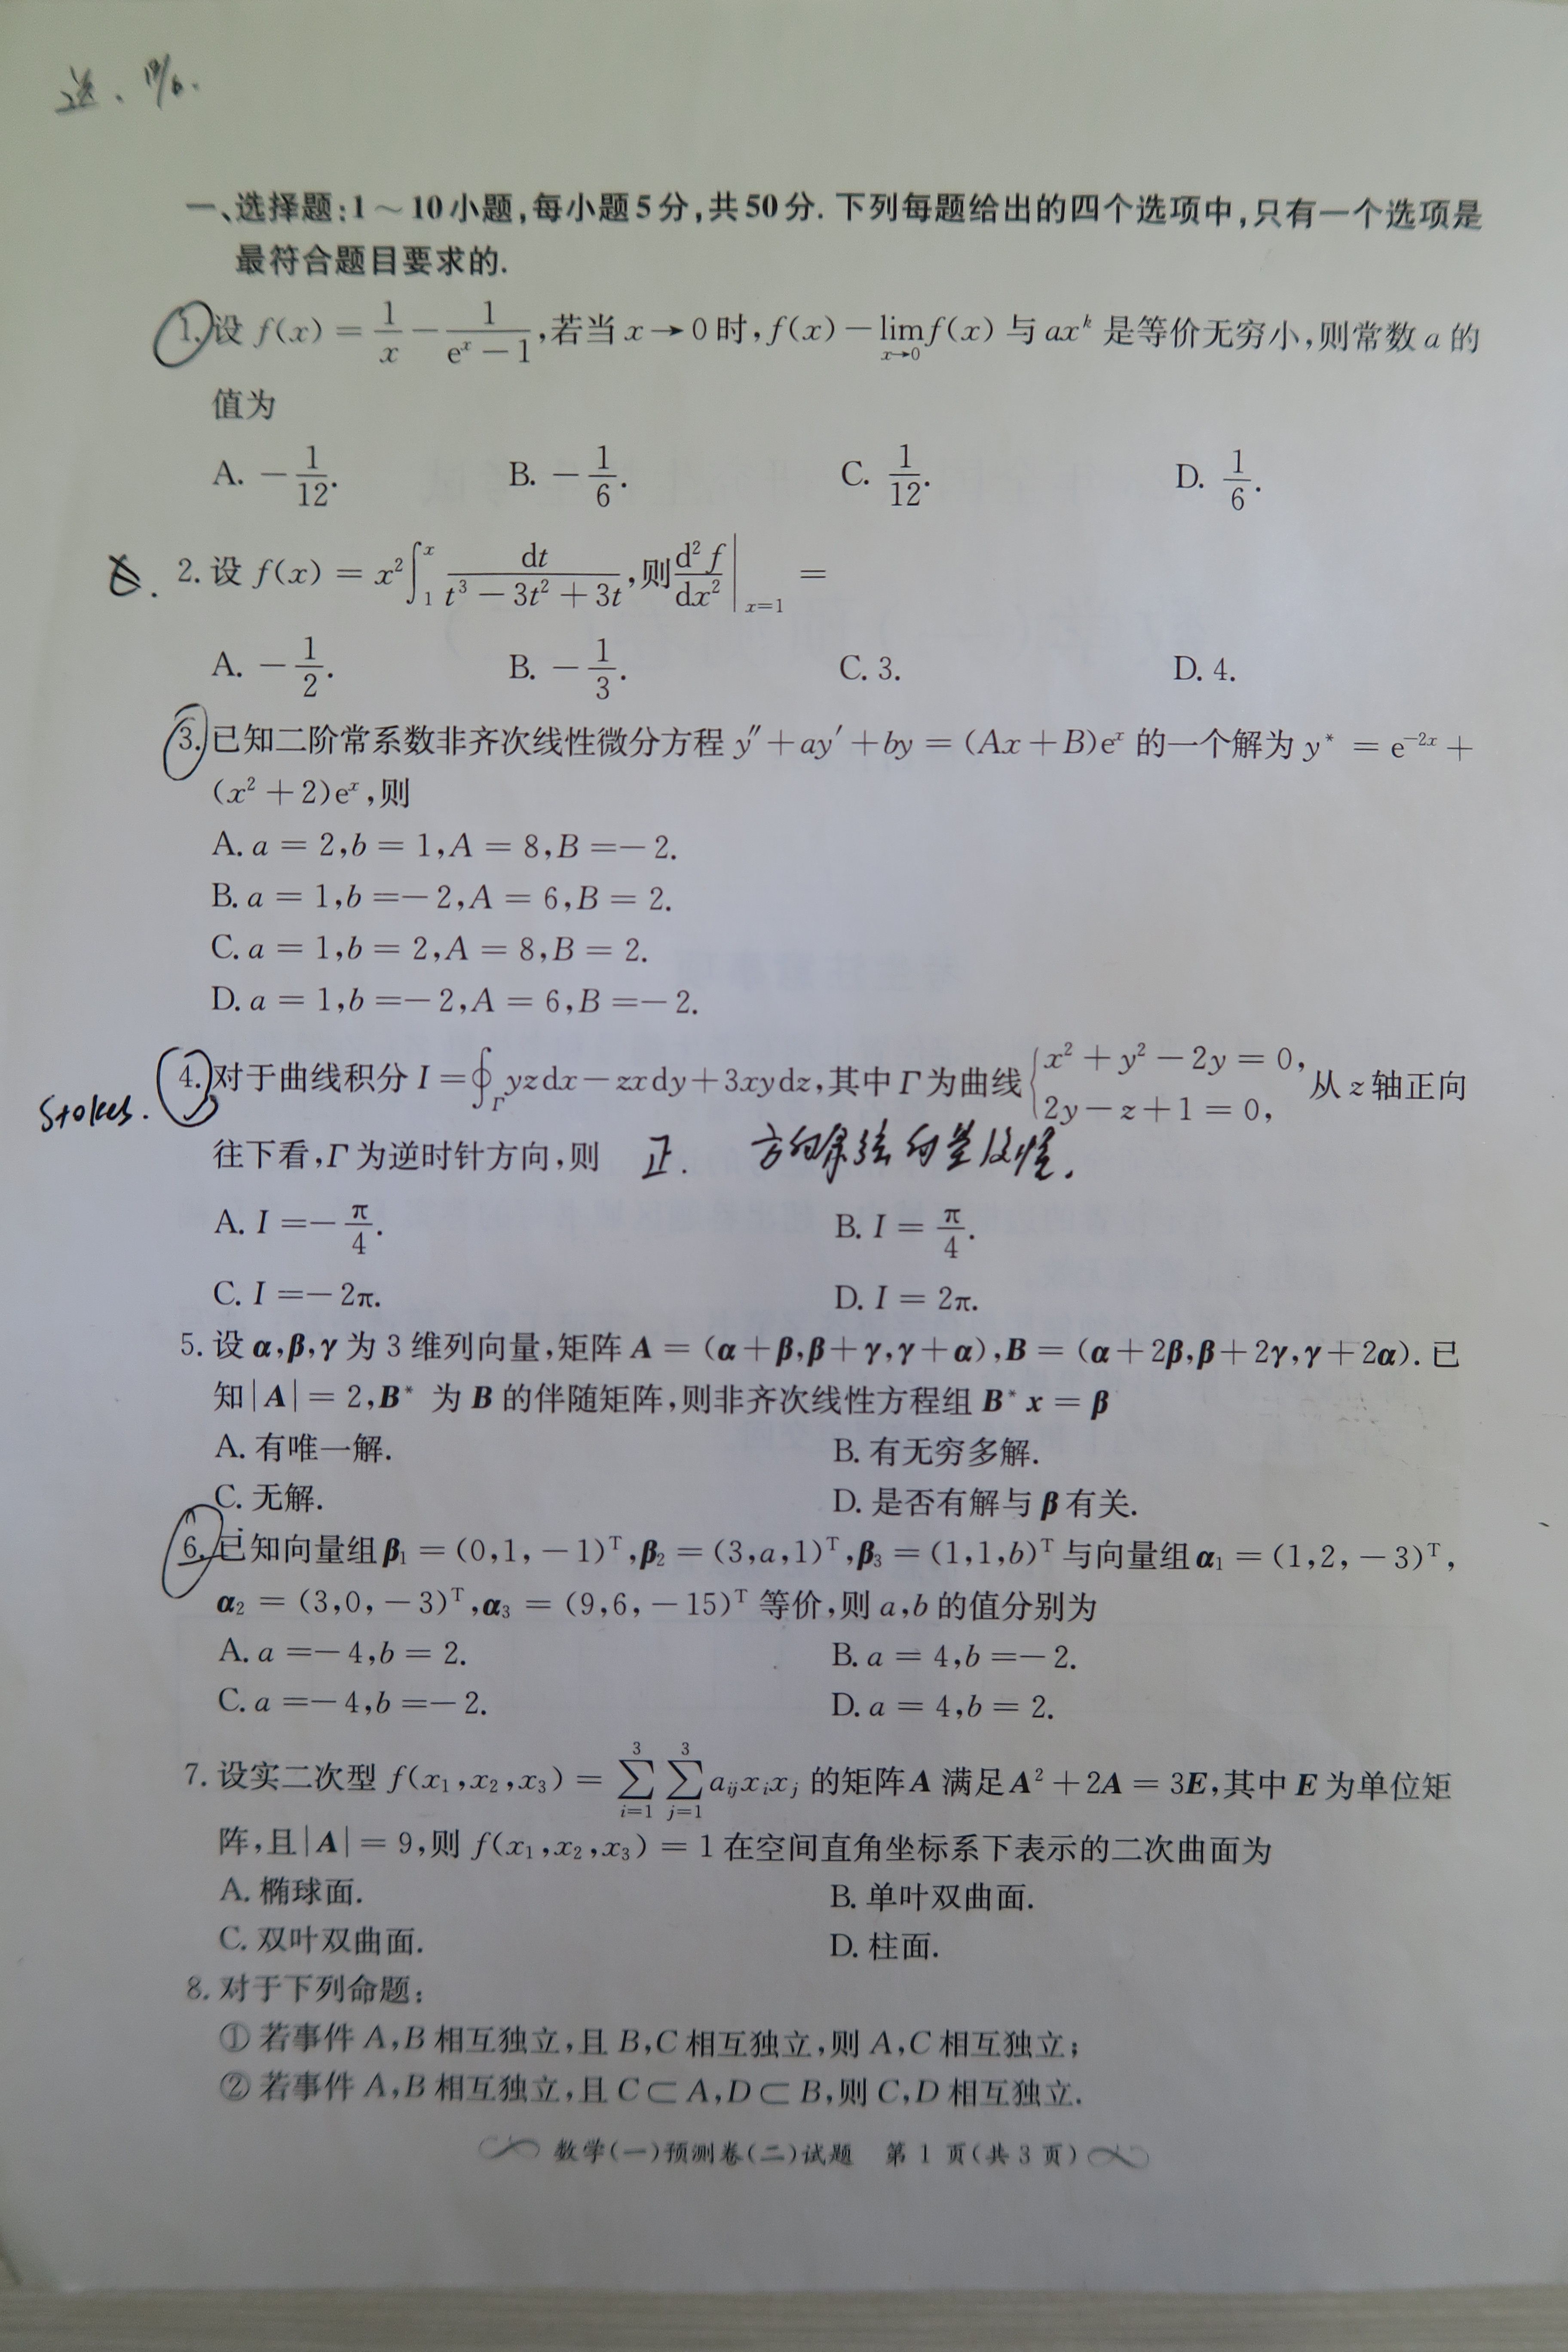 一、选择题:1～10小题,每小题5分,共50分.下列每题给出的四个选项中,只有一个选项是
最符合题目要求的.
1.设 f(x) = 1/x − 1/(eˣ − 1),若当 x→0 时,f(x) − lim_{x→0} f(x) 与 axᵏ 是等价无穷小,则常数 a 的
值为
A. −1/12.  B. −1/6.  C. 1/12.  D. 1/6.
2.设 f(x) = x²∫₁ˣ dt/(t³ − 3t² + 3t),则 d²f/dx²|_{x=1} =
A. −1/2.  B. −1/3.  C. 3.  D. 4.
3.已知二阶常系数非齐次线性微分方程 y″ + ay′ + by = (Ax + B)eˣ 的一个解为 y* = e⁻²ˣ +
(x² + 2)eˣ,则
A. a = 2,b = 1,A = 8,B = −2.
B. a = 1,b = −2,A = 6,B = 2.
C. a = 1,b = 2,A = 8,B = 2.
D. a = 1,b = −2,A = 6,B = −2.
Stokes.
4.对于曲线积分 I = ∮_Γ yzdx − zxdy + 3xydz,其中 Γ 为曲线 { x² + y² − 2y = 0, 2y − z + 1 = 0, 从 z 轴正向
往下看,Γ 为逆时针方向,则 正. 方向余弦向量
A. I = −π/4.  B. I = π/4.
C. I = −2π.  D. I = 2π.
5.设 α,β,γ 为 3 维列向量,矩阵 A = (α + β,β + γ,γ + α),B = (α + 2β,β + 2γ,γ + 2α).已
知|A| = 2,B* 为 B 的伴随矩阵,则非齐次线性方程组 B*x = β
A. 有唯一解.  B. 有无穷多解.
C. 无解.  D. 是否有解与 β 有关.
6.已知向量组 β₁ = (0,1,−1)ᵀ,β₂ = (3,a,1)ᵀ,β₃ = (1,1,b)ᵀ 与向量组 α₁ = (1,2,−3)ᵀ,
α₂ = (3,0,−3)ᵀ,α₃ = (9,6,−15)ᵀ 等价,则 a,b 的值分别为
A. a = −4,b = 2.  B. a = 4,b = −2.
C. a = −4,b = −2.  D. a = 4,b = 2.
7.设实二次型 f(x₁,x₂,x₃) = ∑_{i=1}^{3} ∑_{j=1}^{3} a_{ij}x_i x_j 的矩阵 A 满足 A² + 2A = 3E,其中 E 为单位矩
阵,且|A| = 9,则 f(x₁,x₂,x₃) = 1 在空间直角坐标系下表示的二次曲面为
A. 椭球面.  B. 单叶双曲面.
C. 双叶双曲面.  D. 柱面.
8.对于下列命题:
① 若事件 A,B 相互独立,且 B,C 相互独立,则 A,C 相互独立;
② 若事件 A,B 相互独立,且 C⊂A,D⊂B,则 C,D 相互独立.
数学(一)预测卷(二)试题 第 1 页(共 3 页)